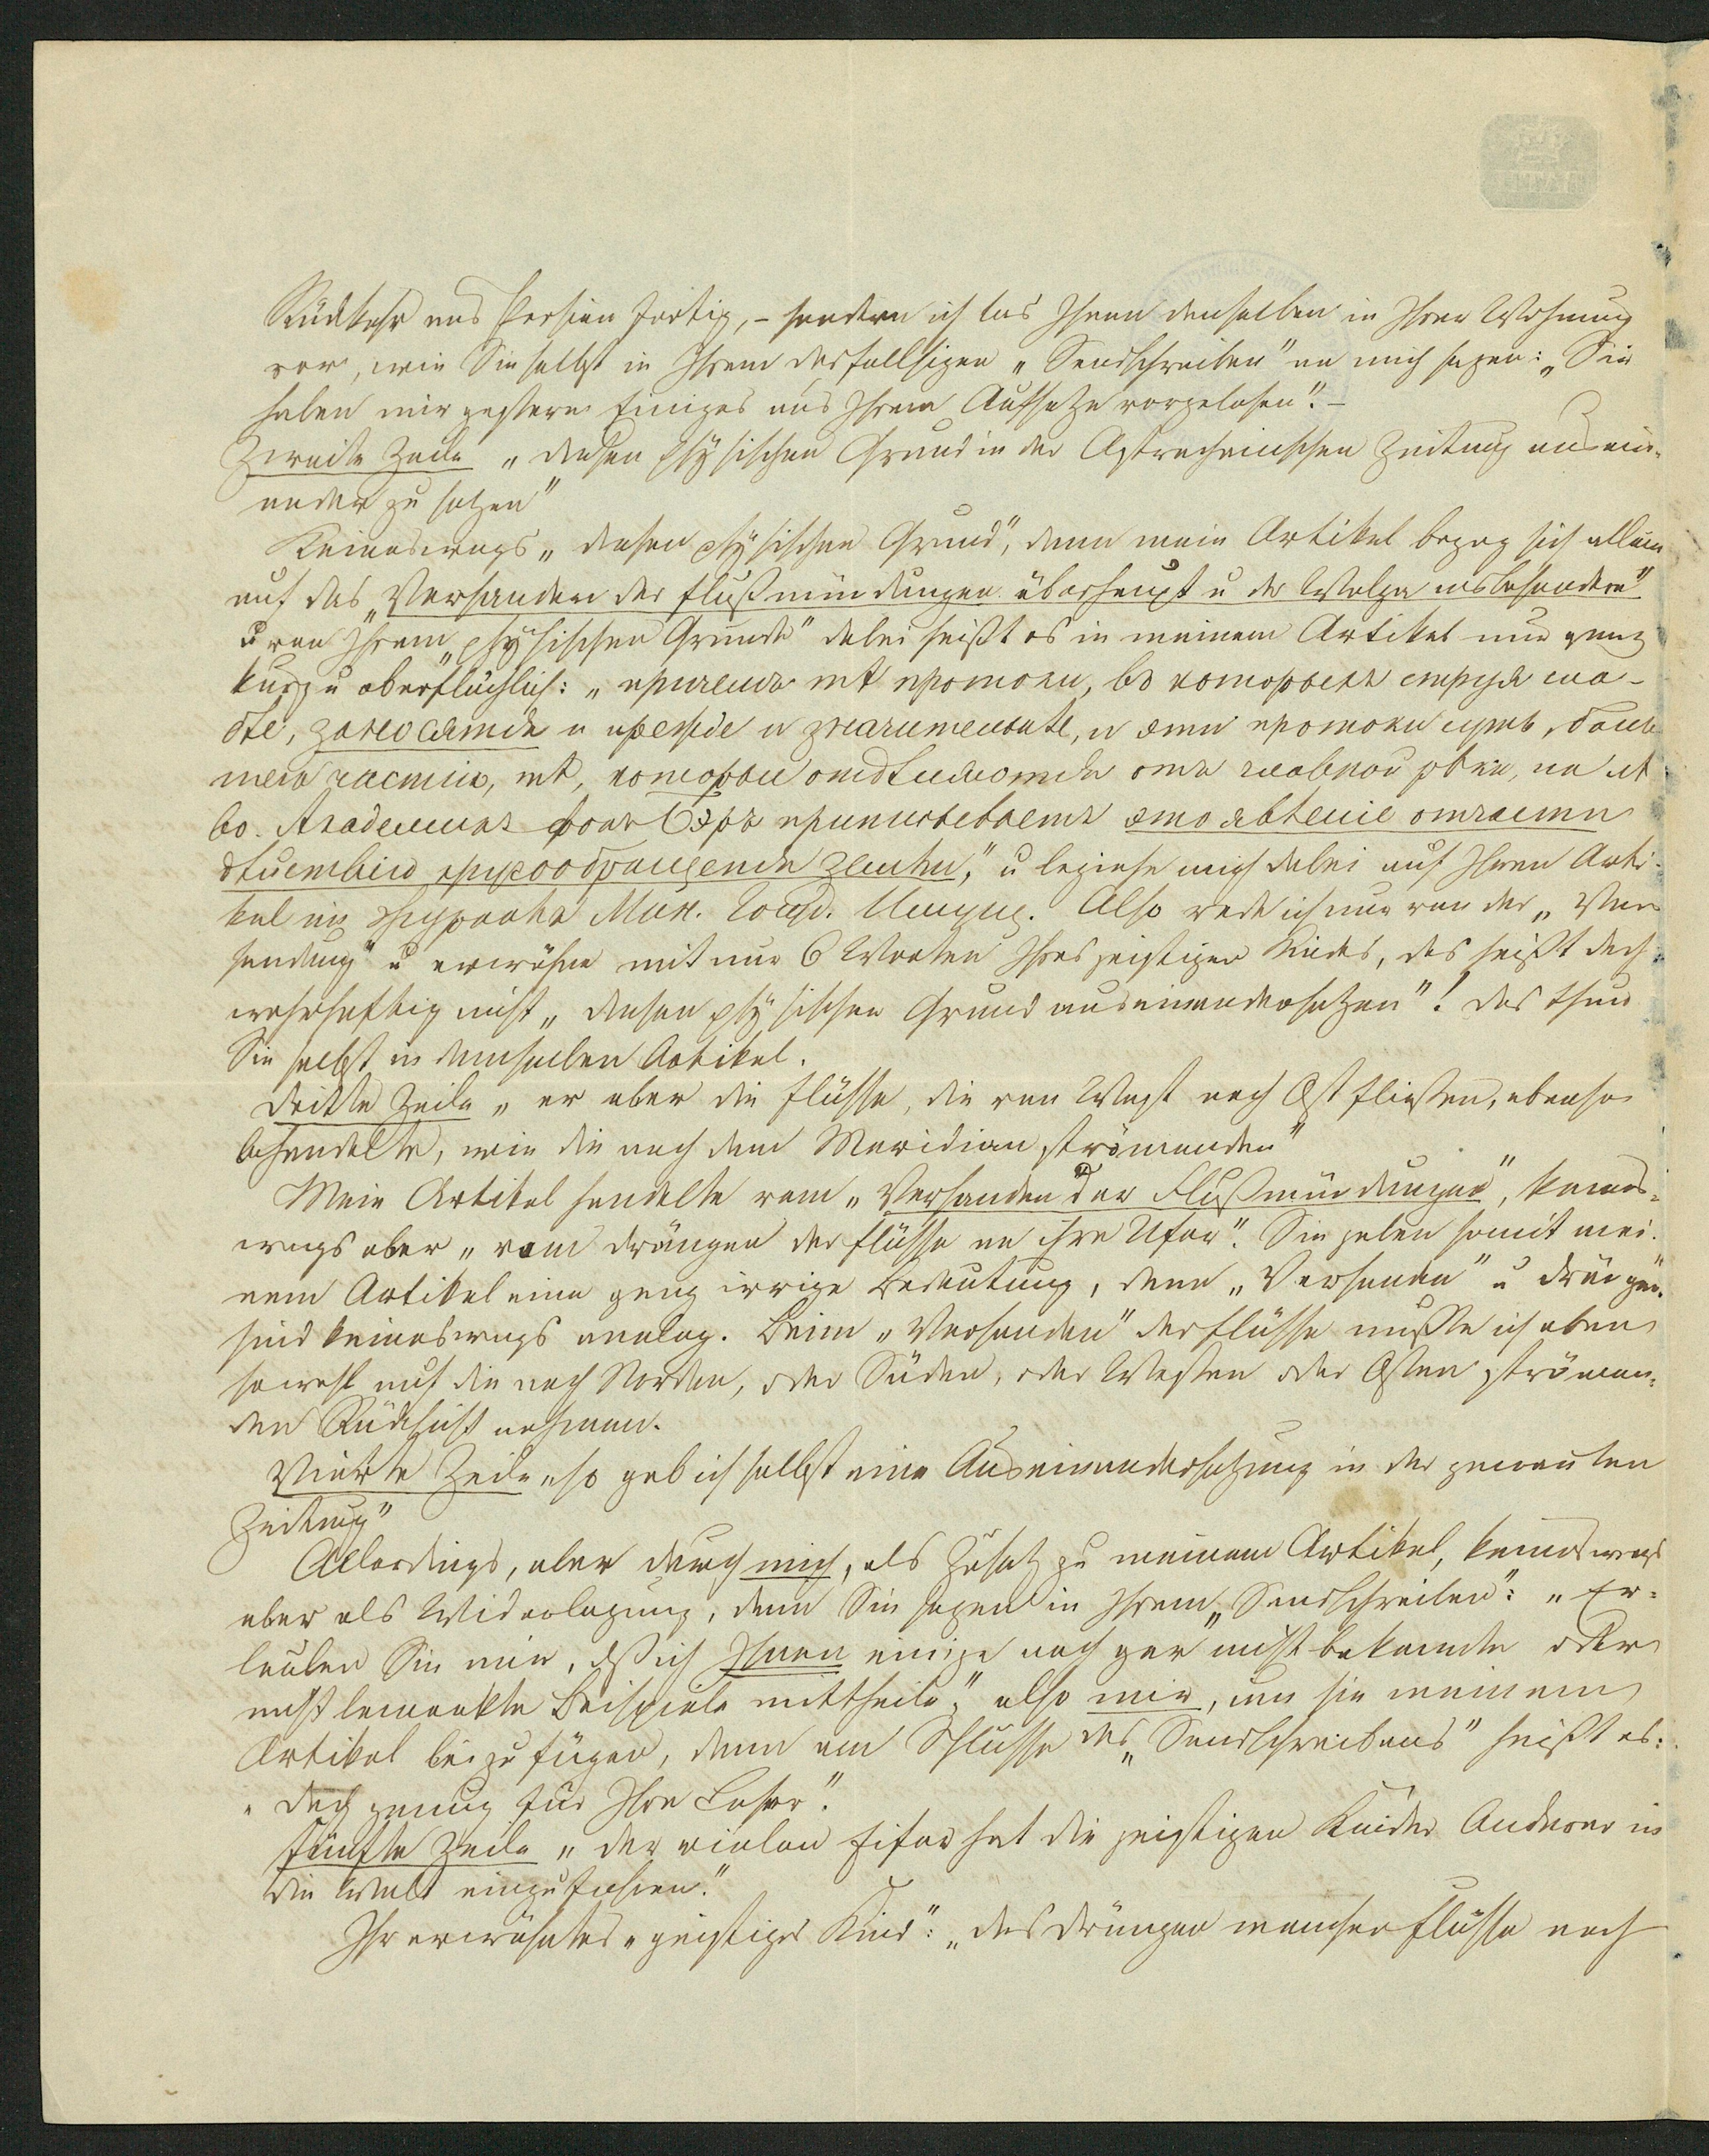 Rückkehr aus Persien fertig, – sondern ich las Ihnen denselben in Ihrer Wohnung
vor, wie Sie selbst in Ihrem desfallsigen „Sendschreiben" an mich sagen: „Sie
haben mir gestern Einiges aus Ihrem Aufsatze vorgelesen". –
Zweite Zeile „dessen physischen Grund in der Astrachanischen Zeitung ausein-
ander zu setzen"
Keineswegs „dessen physischen Grund", denn mein Artikel bezog sich allein
auf das „Versanden der Flußmündungen überhaupt u der Wolga insbesondere"
u von Ihrem „physischen Grunde" dabei heißt es in meinem Artikel nur ganz
kurz u oberflächlich: „причемъ тѣ протоки, въ которыхъ струя сла-
бѣе, заносятся и прежде и значительнѣе, и эти протоки суть, боль-
шею частію, тѣ, которые отдѣляются отъ главной рѣки, на лѣ-
во. Академикъ фонъ Бэръ приписываетъ это явленіе отчасти
дѣйствію кругообращенія земли," u beziehe mich dabei auf Ihren Arti-
kel im Журналъ Мин. Госуд. Имущ. Also rede ich nur von der „Ver-
sandung" u erwähne mit nur 6 Worten Ihres geistigen Kindes, das heißt doch
wahrhaftig nicht „dessen physischen Grund auseinandersetzen"! Das thun
Sie selbst in demselben Artikel.
Dritte Zeile „er aber die Flüsse, die von West nach Ost fließen, ebenso
behandelte, wie die nach dem Meridian strömenden"
Mein Artikel handelte vom „Versanden der Flußmündungen", keines-
wegs aber „vom Drängen der Flüsse an ihre Ufer". Sie geben somit mei-
nem Artikel eine ganz irrige Bedeutung, denn „Versanden" u Drängen"
sind keineswegs analog. Beim „Versanden" der Flüsse mußte ich eben
sowohl auf die nach Norden, oder Süden, oder Westen oder Osten strömen-
den Rücksicht nehmen.
Vierte Zeile „so gab ich selbst eine Auseinandersetzung in der genannten
Zeitung"
Allerdings, aber durch mich, als Zusatz zu meinem Artikel, keineswegs
aber als Widerlegung, denn Sie sagen in Ihrem „Sendschreiben": „Er-
lauben Sie mir, dß ich Ihnen einige noch gar nicht bekannte oder
nicht bemerkte Beispiele mittheile", also mir, um sie meinem
Artikel beizufügen, denn am Schlusse des „Sendschreibens" heißt es:
„Doch genug für Ihre Leser".
Fünfte Zeile „der vielen Eifer hat die geistigen Kinder Anderer in
die Welt einzuführen."
Ihr erwähntes „geistiges Kind": „das Drängen mancher Flüsse nach